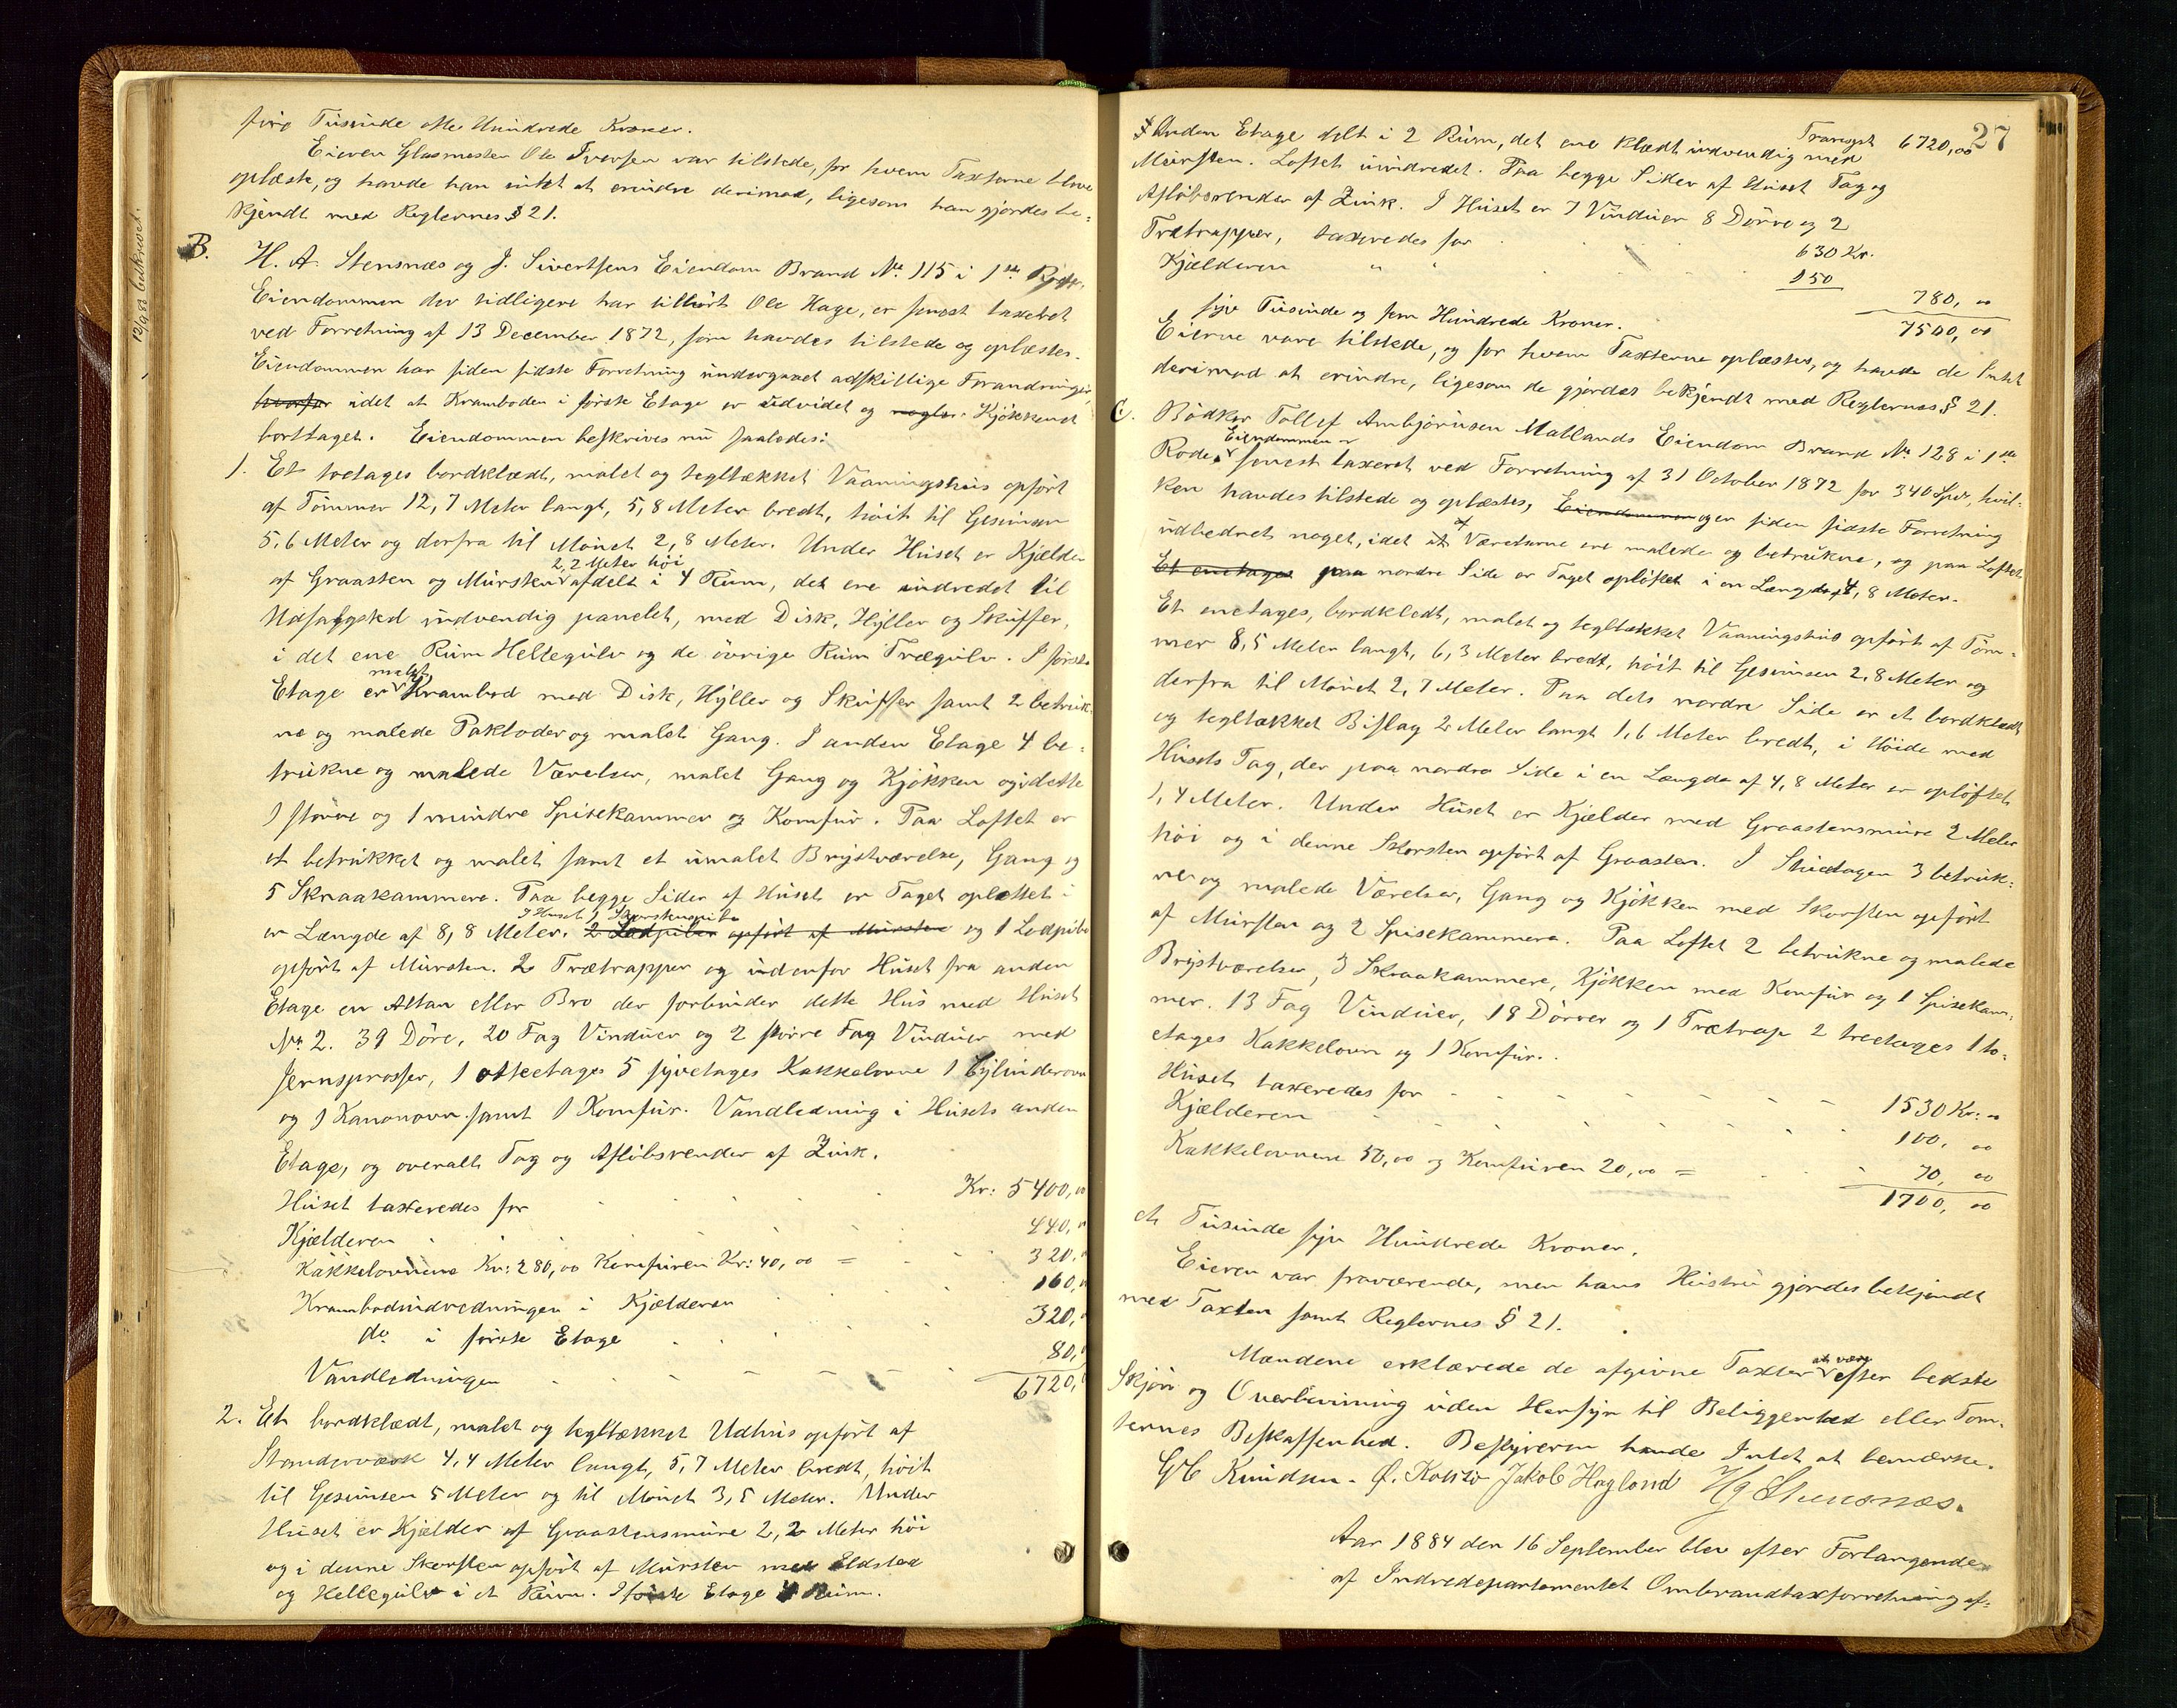 fire Tusinde otte Hundrede Kroner.
Eieren Glasmester Ole Iversen var tilstede, for hvem Taxterne blev
oplæste, og havde han intet at erindre derimod, ligesom han gjordes be-
kjendt med Reglernes § 21.
B. H. A. Stensnæs og J. Sivertsens Eiendom Brand No 115 i 1ste Rode.
Eiendommen der tidligere har tilhørt Ole Hage, er senest taxeret
ved Forretning af 13 December 1872, som havdes tilstede og oplæstes.
Eiendommen har siden sidste Forretning undergaaet adskillige Forandringer,
hvorfor idet at Kramboden i første Etage er udvidet og nogle Kjøkkenet
borttaget. Eiendommen beskrives nu saaledes:
1. Et toetages bordklædt, malet og tegltækket Vaaningshus opført
af Tømmer 12,7 Meter langt, 5,8 Meter bredt, høit til Gesimsen
5,6 Meter og derfra til Mønet 2,8 Meter. Under Huset er Kjælder
2,2 Meter høi
af Graasten og Mursten afdelt i 4 Rum, det ene indredet til
Udsalgssted indvendig panelet, med Disk, Hyller og Skuffer,
i det ene Rum Hellegulv og de øvrige Rum Trægulv. I første
malet
Etage er Krambod med Disk, Hyller og Skuffer samt 2 betruk-
ne og malede Pakboder og malet Gang. I anden Etage 4 be-
trukne og malede Værelser, malet Gang og Kjøkken og i dette
1 større og 1 mindre Spisekammer og Komfur. Paa Loftet er
et betrukket og malet samt et umalet Brystværelse, Gang og
5 Skraakammere. Paa begge Sider af Huset er Taget opløftet i
I Huset 1 Skorstenspibe
en Længde af 8,8 Meter. 2 Lodpiber opført af Mursten og 1 Lodpibe
opført af Mursten. 2 Trætrapper og udenfor Huset fra anden
Etage en Altan eller Bro der forbinder dette Hus med Huset
No 2. 39 Døre, 20 Fag Vinduer og 2 større Fag Vinduer med
Jernsprosser, 1 otteetages 5 syvetages Kakkelovne 1 Cylinderovn
og 1 Kanonovn samt 1 Komfur. Vandledning i Husets anden
Etage, og overalt Tag og Afløbsrender af Zink.
Huset taxeredes for Kr: 5400,00
Kjælderen 440,
Kakkelovnene Kr: 280,00 Komfuren Kr: 40,00 = 320,
Krambodindredningen i Kjælderen 160,
do i første Etage 320,
Vandledningen 80,
6720,
2. Et bordklædt, malet og tegltækket Udhus opført af
Standerværk 4,4 Meter langt, 5,7 Meter bredt, høit
til Gesimsen 5 Meter og til Mønet 3,5 Meter. Under
Huset er Kjælder af Graastensmure 2,2 Meter høi
og i denne Skorsten opført af Mursten med Ildsted
og Hellegulv i et Rum. I første Etage 4 Rum.
12/9 83 beskrevet.
27
Transpt 6720,00
I Anden Etage delt i 2 Rum, det ene klædt indvendig med
Mursten. Loftet uindredet. Paa begge Sider af Huset Tag og
Afløbsrender af Zink. I Huset er 7 Vinduer 8 Dørre og 2
Trætrapper, taxeredes for 630 Kr.
Kjælderen " " 150
780,00
7500,00
syv Tusinde og fem Hundrede Kroner.
Eierne vare tilstede, og for hvem Taxterne oplæstes, og havde de Intet
derimod at erindre, ligesom de gjordes bekjendt med Reglernes § 21.
C. Bødker Tollef Ambjørnsen Matlands Eiendom Brand No 128 i 1ste
Eiendommen er
Rode, senest taxeret ved Forretning af 31 October 1872 for 340 Spd, hvil-
ken havdes tilstede og oplæstes, Eiendommen og er siden sidste Forretning
udbedret noget, idet at Værelserne ere malede og betrukne, og paa Loftet
Et enetages paa nordre Side er Taget opløftet i en Længde af 4,8 Meter.
Et enetages, bordklædt, malet og tegltækket Vaaningshus opført af Tøm-
mer 8,5 Meter langt, 6,3 Meter bredt, høit til Gesimsen 2,8 Meter og
derfra til Mønet 2,7 Meter. Paa dets nordre Side er et bordklædt
og tegltækket Bislag 2 Meter langt 1,6 Meter bredt, i Høide med
Husets Tag, der paa nordre Side i en Længde af 4,8 Meter er opløftet
1,4 Meter. Under Huset er Kjælder med Graastensmure 2 Meter
høi og i denne Skorsten opført af Graasten. I Stuetagen 3 betruk-
ne og malede Værelser, Gang og Kjøkken med Skorsten opført
af Mursten og 2 Spisekammere. Paa Loftet 2 betrukne og malede
Brystværelser, 3 Skraakammere, Kjøkken med Komfur og 1 Spisekam-
mer. 13 Fag Vinduer, 18 Dørrer og 1 Trætrap 2 treetages 1 to-
etages Kakkelovn og 1 Komfur.
Huset taxeredes for 1530 Kr: 00
Kjælderen 100,00
Kakkelovnene 50,00 og Komfuren 20,00 = 70,00
1700,00
et Tusinde syv Hundrede Kroner.
Eieren var fraværende, men hans Hustru gjordes bekjendt
med Taxten samt Reglernes § 21.
at være
Mændene erklærede de afgivne Taxter efter bedste
Skjøn og Overbevisning uden Hensyn til Beliggenhed eller Tom-
ternes Beskaffenhed. Bestyreren havde Intet at bemærke.
Knudsen. Jakob Hagland Stensnæs.
Aar 1884 den 16 September blev efter Forlangende
af Indredepartementet Ombrandtaxtforretning af-